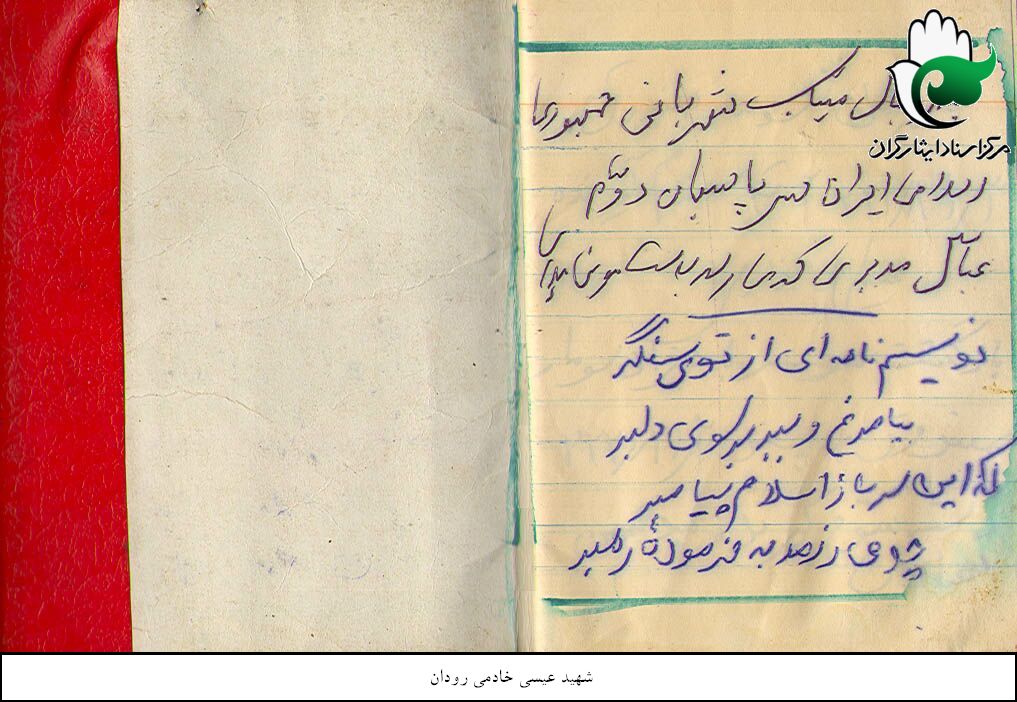 مرکز اسناد ایثارگران
شهربانی جمهوری
اسلامی ایران سر پاسبان دوّم
عباس مدیری
نویسم نامه ای از توی سنگر
بیا مرغ و ببر بر سوی دلبر
که این سرباز اسلام پیامبر
می رزمد به فرمودهٔ رهبر
شهید عیسی خادمی رودان